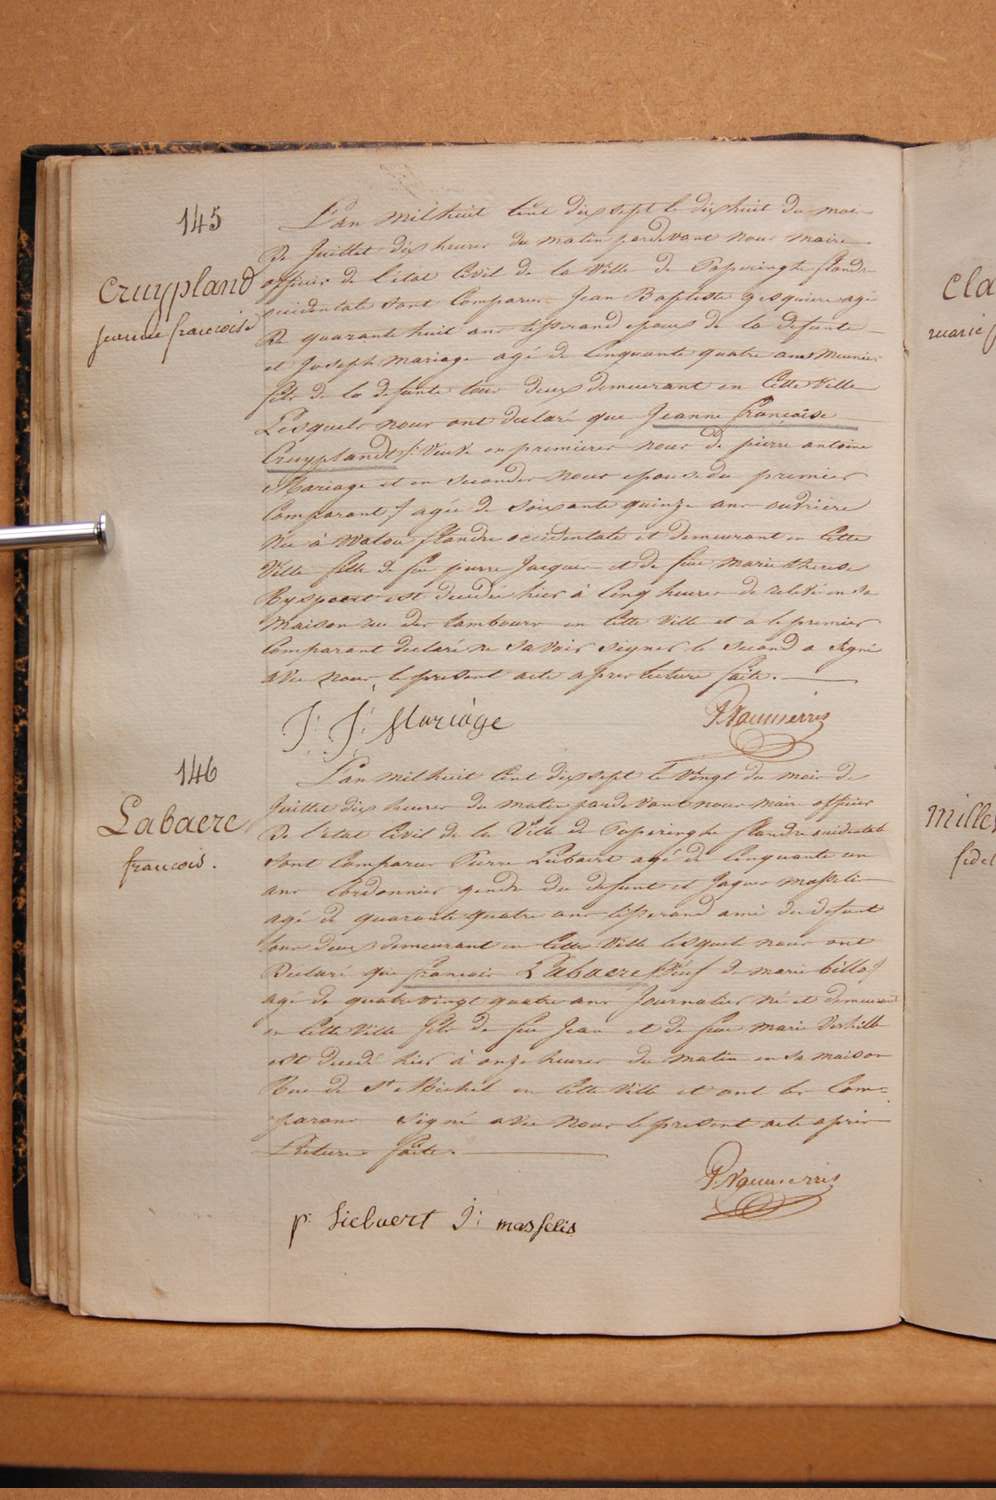 145
Cruypland
jeanne francoise
L'an mil huit cent dix sept le dix huit du mois
De Juillet dix heures du matin pardevant nous maire
officier de l'état Civil de la Ville de Poperinghe flandre
occidentale sont Comparus Jean Baptiste Gesquiere agé
De quarante huit ans tisserand epoux de la defunte
et Joseph Mariage agé de Cinquante quatre ans Meunier
fils de la defunte tous deux demeurant en Cette Ville
Lesquels nous ont declaré que Jeanne françoise
Cruyplandt Veuve en premieres noces de pierre antoine
Mariage et en secondes noces epouse du premier
Comparant agée de soixante quinze ans ouvriere
Née à Watou flandre occidentale et demeurant en Cette
Ville fille de feu pierre Jacques et de feue Marie therese
Ryspoort est decedée hier à Cinq heures de relevé en sa
Maison rue des tambours en Cette Ville et a le premier
Comparant declaré ne savoir signer le second a signé
avec nous le present acte apres lecture faite.
J: J: Mariage
146
Labaere
francois.
L'an mil huit Cent dix sept le Vingt du mois de
Juillet dix heures du matin pardevant nous maire officier
De l'état Civil de la Ville de Poperinghe flandre occidentale
sont Comparus Pierre agé de Cinquante un
ans Cordonnier gendre du defunt et Jaques Masselis
agé de quarante quatre ans tisserand ami du defunt
tous deux demeurant en Cette Ville lesquels nous ont
Declaré que francois Labaere Veuf de marie
agé de quatre vingt quatre ans Journalier né et demeurant
en Cette Ville fils de feu Jean et de feue Marie
est decedé hier à onze heures du matin en sa maison
Rue de St Michel en Cette Ville et ont les Com=
parans signé avec Nous le present acte apres
Lecture faite.
p: J: masselis
Cla
marie
Milles
fidel